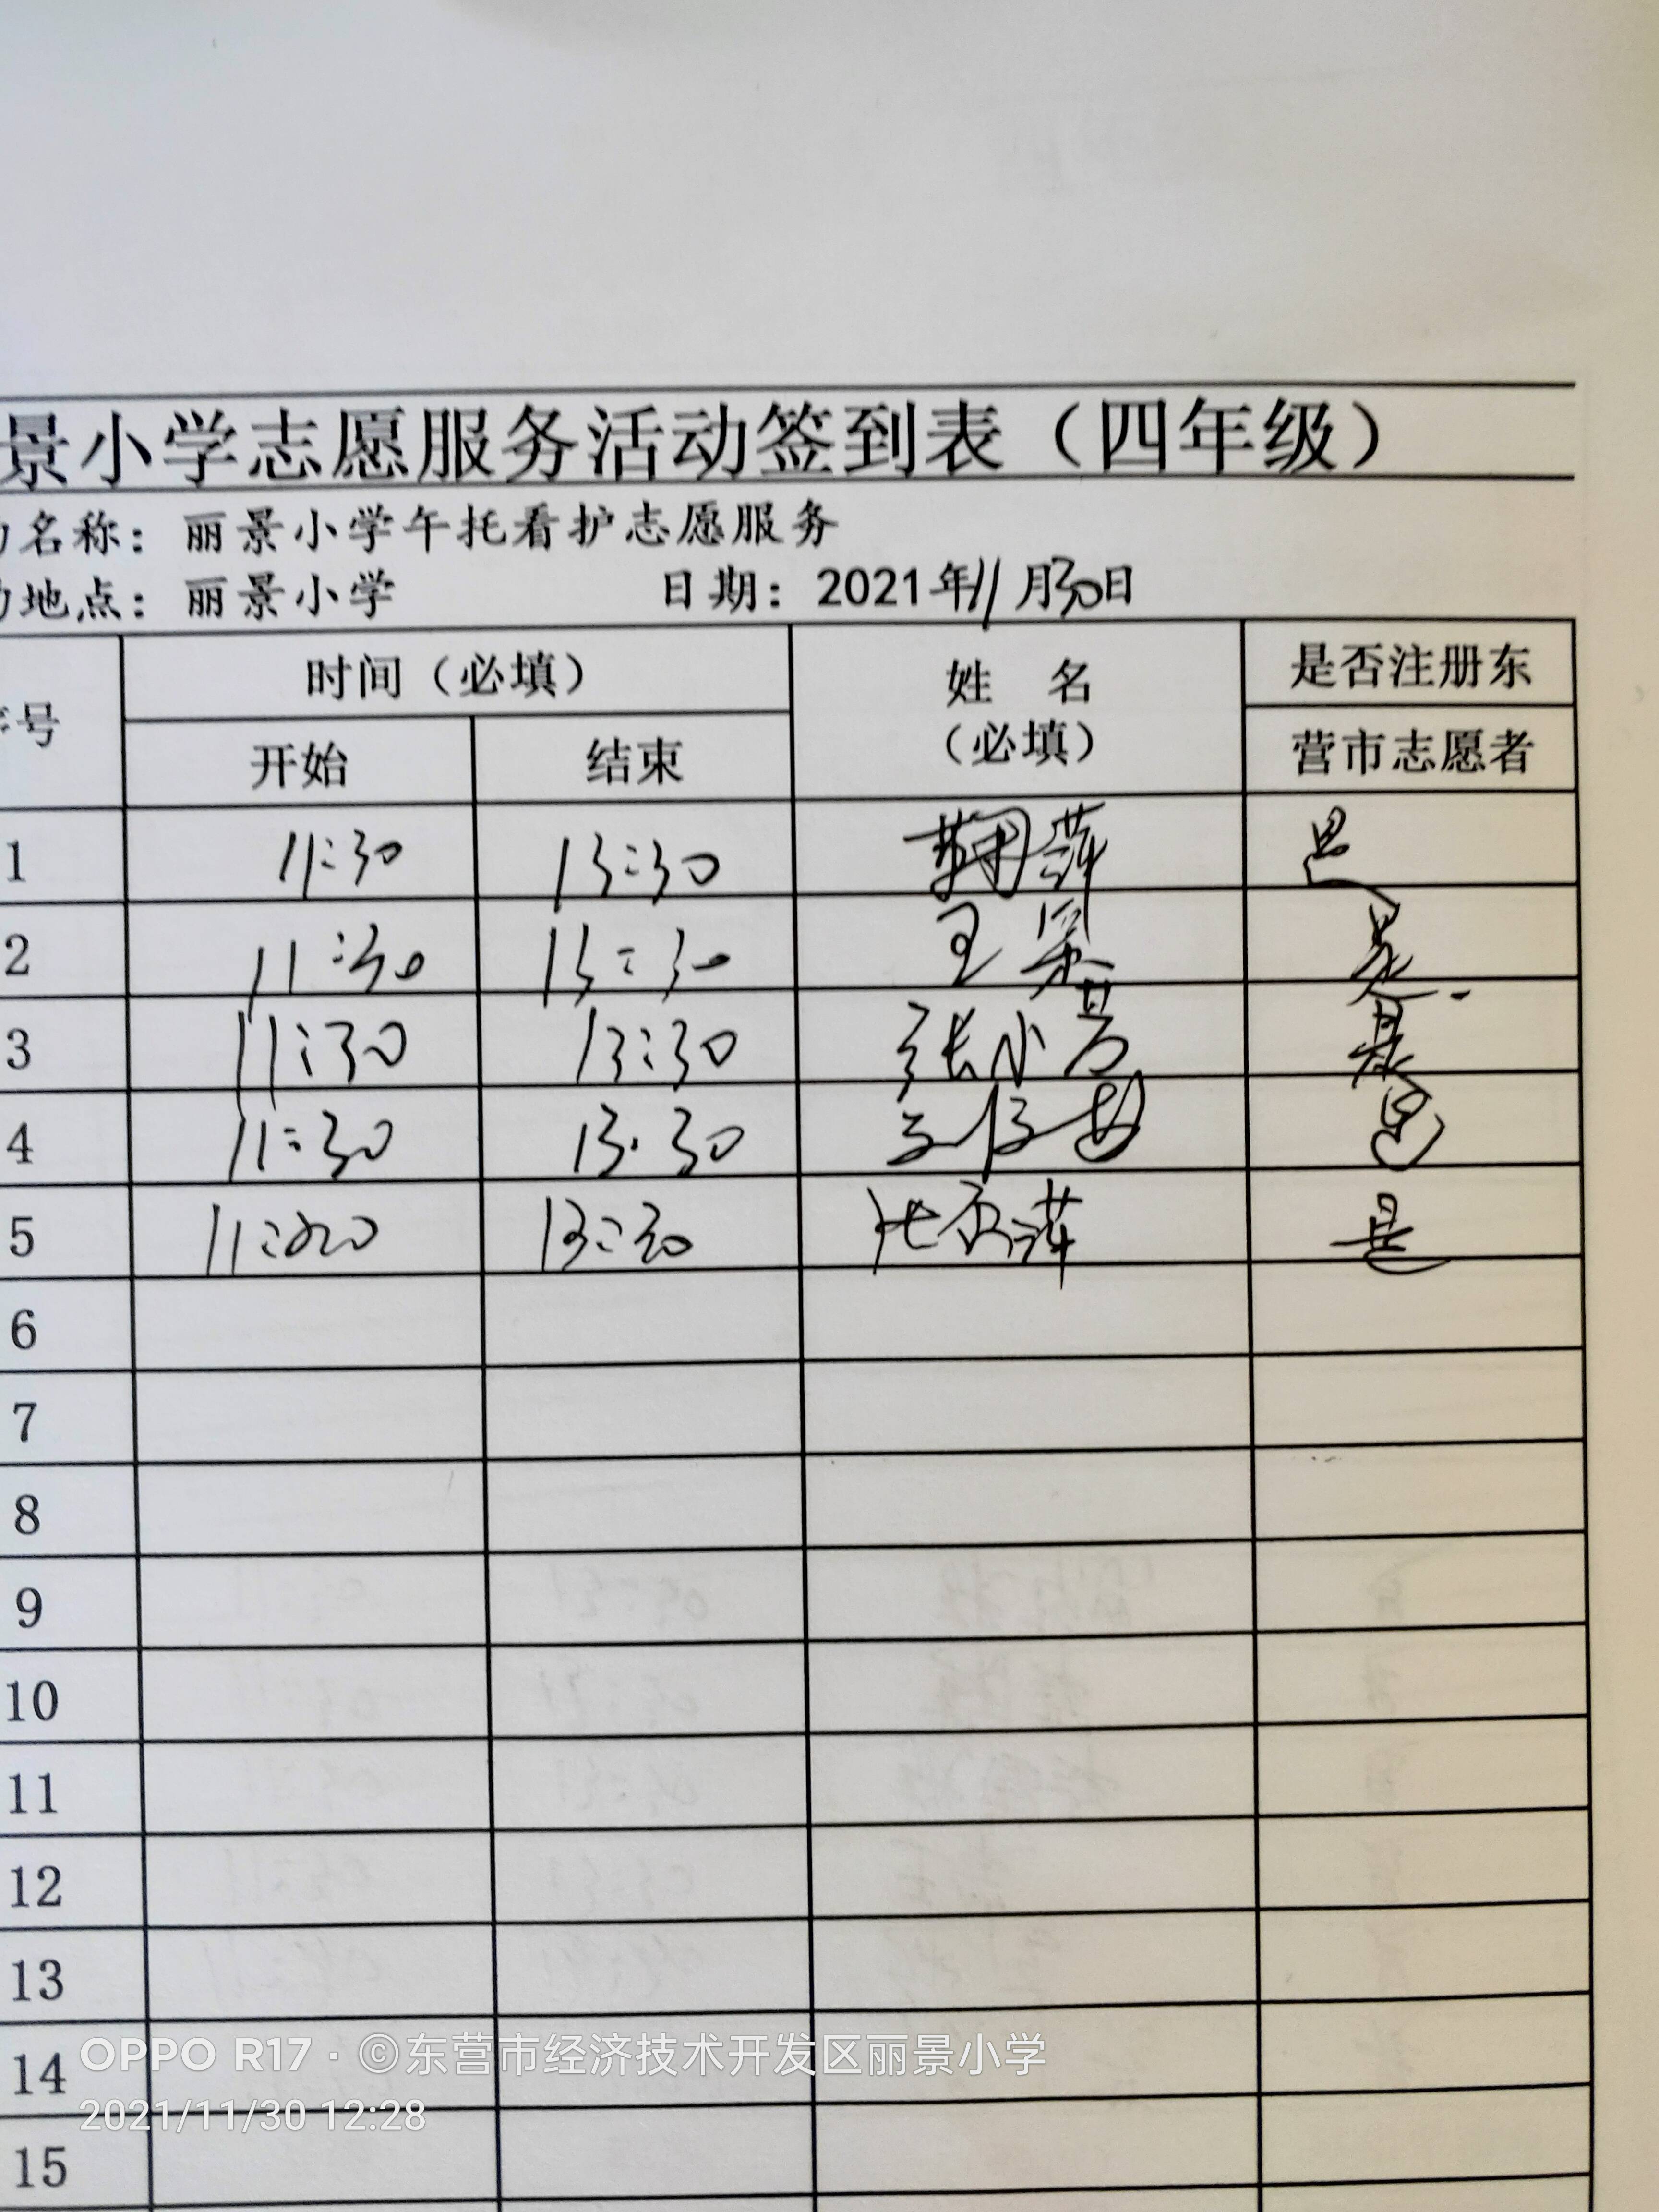 景小学志愿服务活动签到表（四年级）
名称：丽景小学午托看护志愿服务
地点：丽景小学 日期：2021年11月30日
号 时间（必填） 姓 名 是否注册东
开始 结束 （必填） 营市志愿者
1 11:30 13:30 鞠萍 是
2 11:30 13:30 王 是
3 11:30 13:30 张小芳 是
4 11:30 13:30 是
5 11: 13:30 萍 是
6
7
8
9
10
11
12
13
14
15
OPPO R17 · ©东营市经济技术开发区丽景小学
2021/11/30 12:28